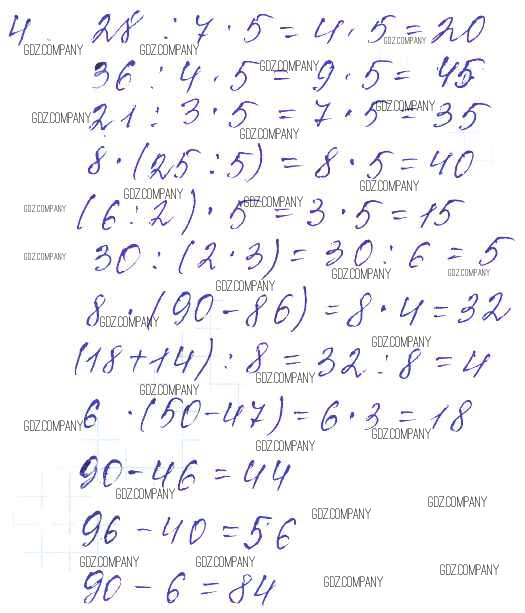 4. 28 : 7 · 5 = 4 · 5 = 20
GDZ.COMPANY GDZ.COMPANY GDZ.COMPANY
36 : 4 · 5 = 9 · 5 = 45
GDZ.COMPANY
21 : 3 · 5 = 7 · 5 = 35
GDZ.COMPANY GDZ.COMPANY GDZ.COMPANY
8 · (25 : 5) = 8 · 5 = 40
GDZ.COMPANY GDZ.COMPANY
(6 : 2) · 5 = 3 · 5 = 15
GDZ.COMPANY GDZ.COMPANY
30 : (2 · 3) = 30 : 6 = 5
GDZ.COMPANY GDZ.COMPANY GDZ.COMPANY
GDZ.COMPANY
8 · (90 - 86) = 8 · 4 = 32
GDZ.COMPANY GDZ.COMPANY
(18 + 14) : 8 = 32 : 8 = 4
GDZ.COMPANY GDZ.COMPANY
6 · (50 - 47) = 6 · 3 = 18
GDZ.COMPANY GDZ.COMPANY GDZ.COMPANY
90 - 46 = 44
GDZ.COMPANY GDZ.COMPANY GDZ.COMPANY
96 - 40 = 56
GDZ.COMPANY GDZ.COMPANY GDZ.COMPANY
90 - 6 = 84
GDZ.COMPANY